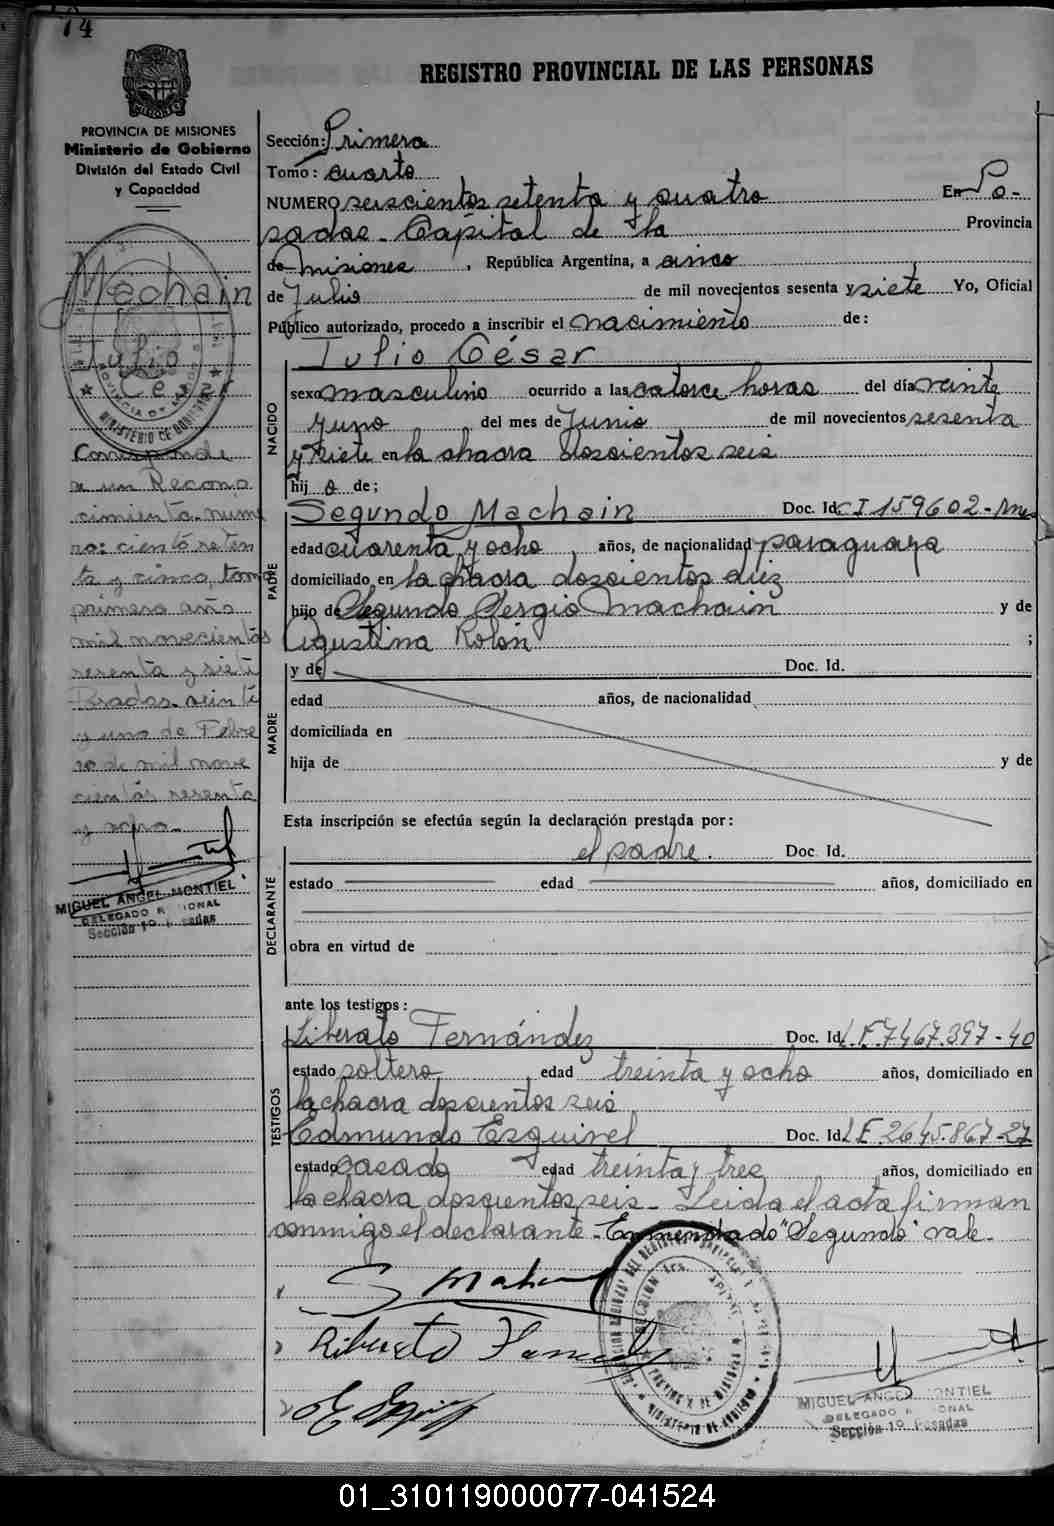 74
REGISTRO PROVINCIAL DE LAS PERSONAS
PROVINCIA DE MISIONES
Ministerio de Gobierno
División del Estado Civil
y Capacidad
Machain
Julio
Cesar
Corresponde
a un Recono
cimiento. nume
ro: ciento seten
ta y cinco, tomo
primero año
mil novecientos
sesenta y siete
Posadas. veinte
y uno de Febre
ro de mil nove
cientos sesenta
y ocho.-
MIGUEL ANGEL MONTIEL
DELEGADO REGIONAL
Sección 1º Posadas
Sección: Primera
Tomo: cuarto
NUMERO seiscientos setenta y cuatro En Po-
sadas - Capital de la Provincia
de Misiones, República Argentina, a cinco
de Julio de mil novecientos sesenta y siete Yo, Oficial
Público autorizado, procedo a inscribir el nacimiento de:
NACIDO
Julio César
sexo masculino ocurrido a las catorce horas del día veinte
y uno del mes de Junio de mil novecientos sesenta
y siete en la chacra doscientos seis
hijo de;
PADRE
Segundo Machain Doc. Id. CI 159602-Mnes
edad cuarenta y ocho, años, de nacionalidad paraguaya
domiciliado en la chacra doscientos diez
hijo de Segundo Sergio Machain y de
Agustina Rolón ;
MADRE
y de Doc. Id.
edad años, de nacionalidad
domiciliada en
hija de y de
Esta inscripción se efectúa según la declaración prestada por:
DECLARANTE
el padre. Doc. Id.
estado edad años, domiciliado en
obra en virtud de
ante los testigos:
TESTIGOS
Liberato Fernández Doc. Id. L.E. 7467.397-40
estado soltero edad treinta y ocho años, domiciliado en
la chacra doscientos seis
Edmundo Esquivel Doc. Id. LE 2645.867-27
estado casado edad treinta y tres años, domiciliado en
la chacra doscientos seis - Leida el acta firman
conmigo el declarante - Enmendado "Segundo" vale-
MIGUEL ANGEL MONTIEL
DELEGADO REGIONAL
Sección 1º Posadas
01_310119000077-041524